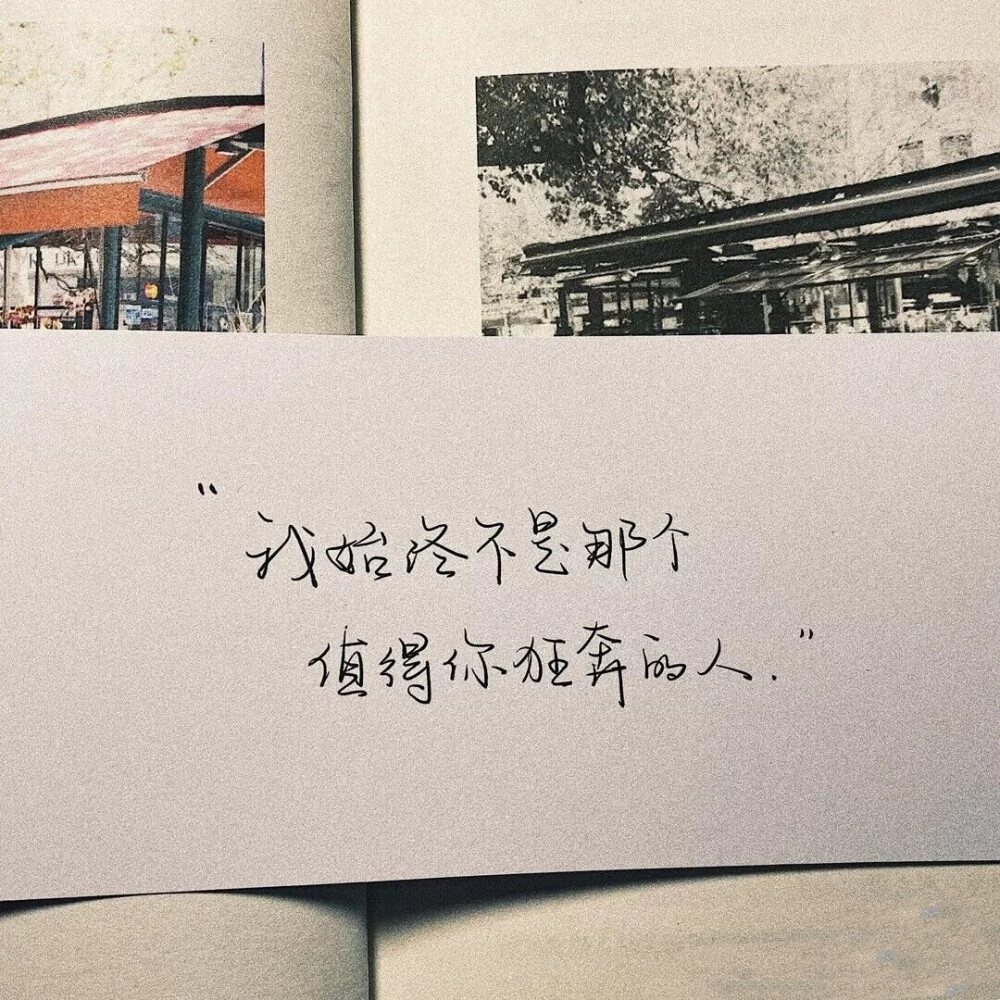 “我始终不是那个
值得你狂奔的人.”